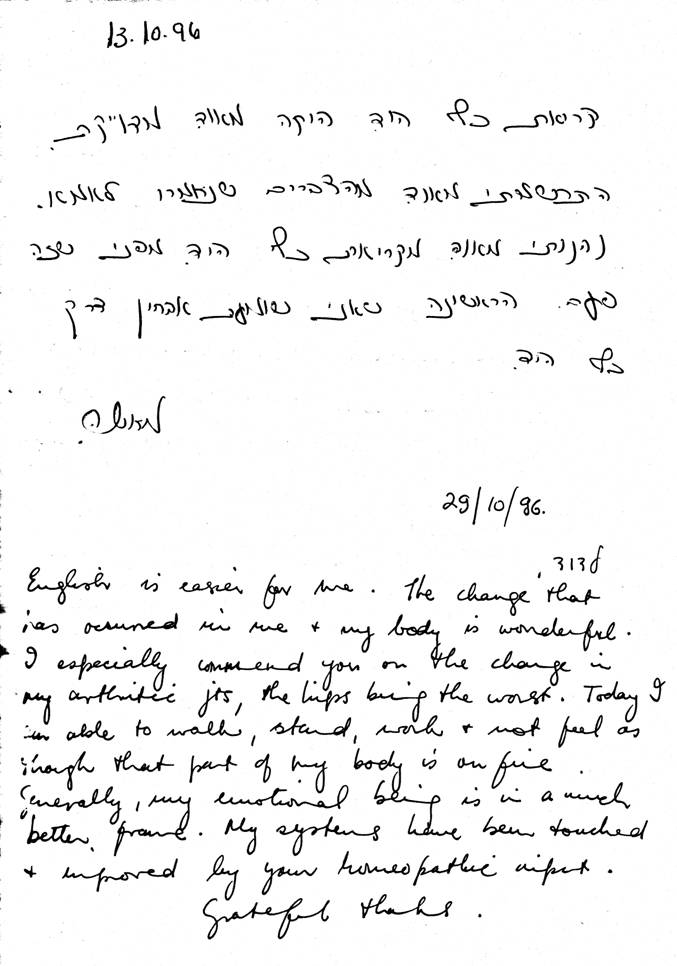 13.10.96
קריאת כף היד היתה מאוד מדוייקת.
התרשמתי מאוד מהדברים שנאמרו לאמא.
נהנותי מאוד מקריאת כף היד מפני שזה
פעם הראשונה שאני שומעת אבחון דרך
כף היד.
29/10/96.
לדוד,
English is easier for me. The change that
has occurred in me + my body is wonderful.
I especially commend you on the change in
my arthritic jts, the hips being the worst. Today I
am able to walk, stand, work + not feel as
though that part of my body is on fire.
Generally, my emotional being is in a much
better frame. My systems have been touched
+ improved by your homeopathic input.
Grateful thanks.